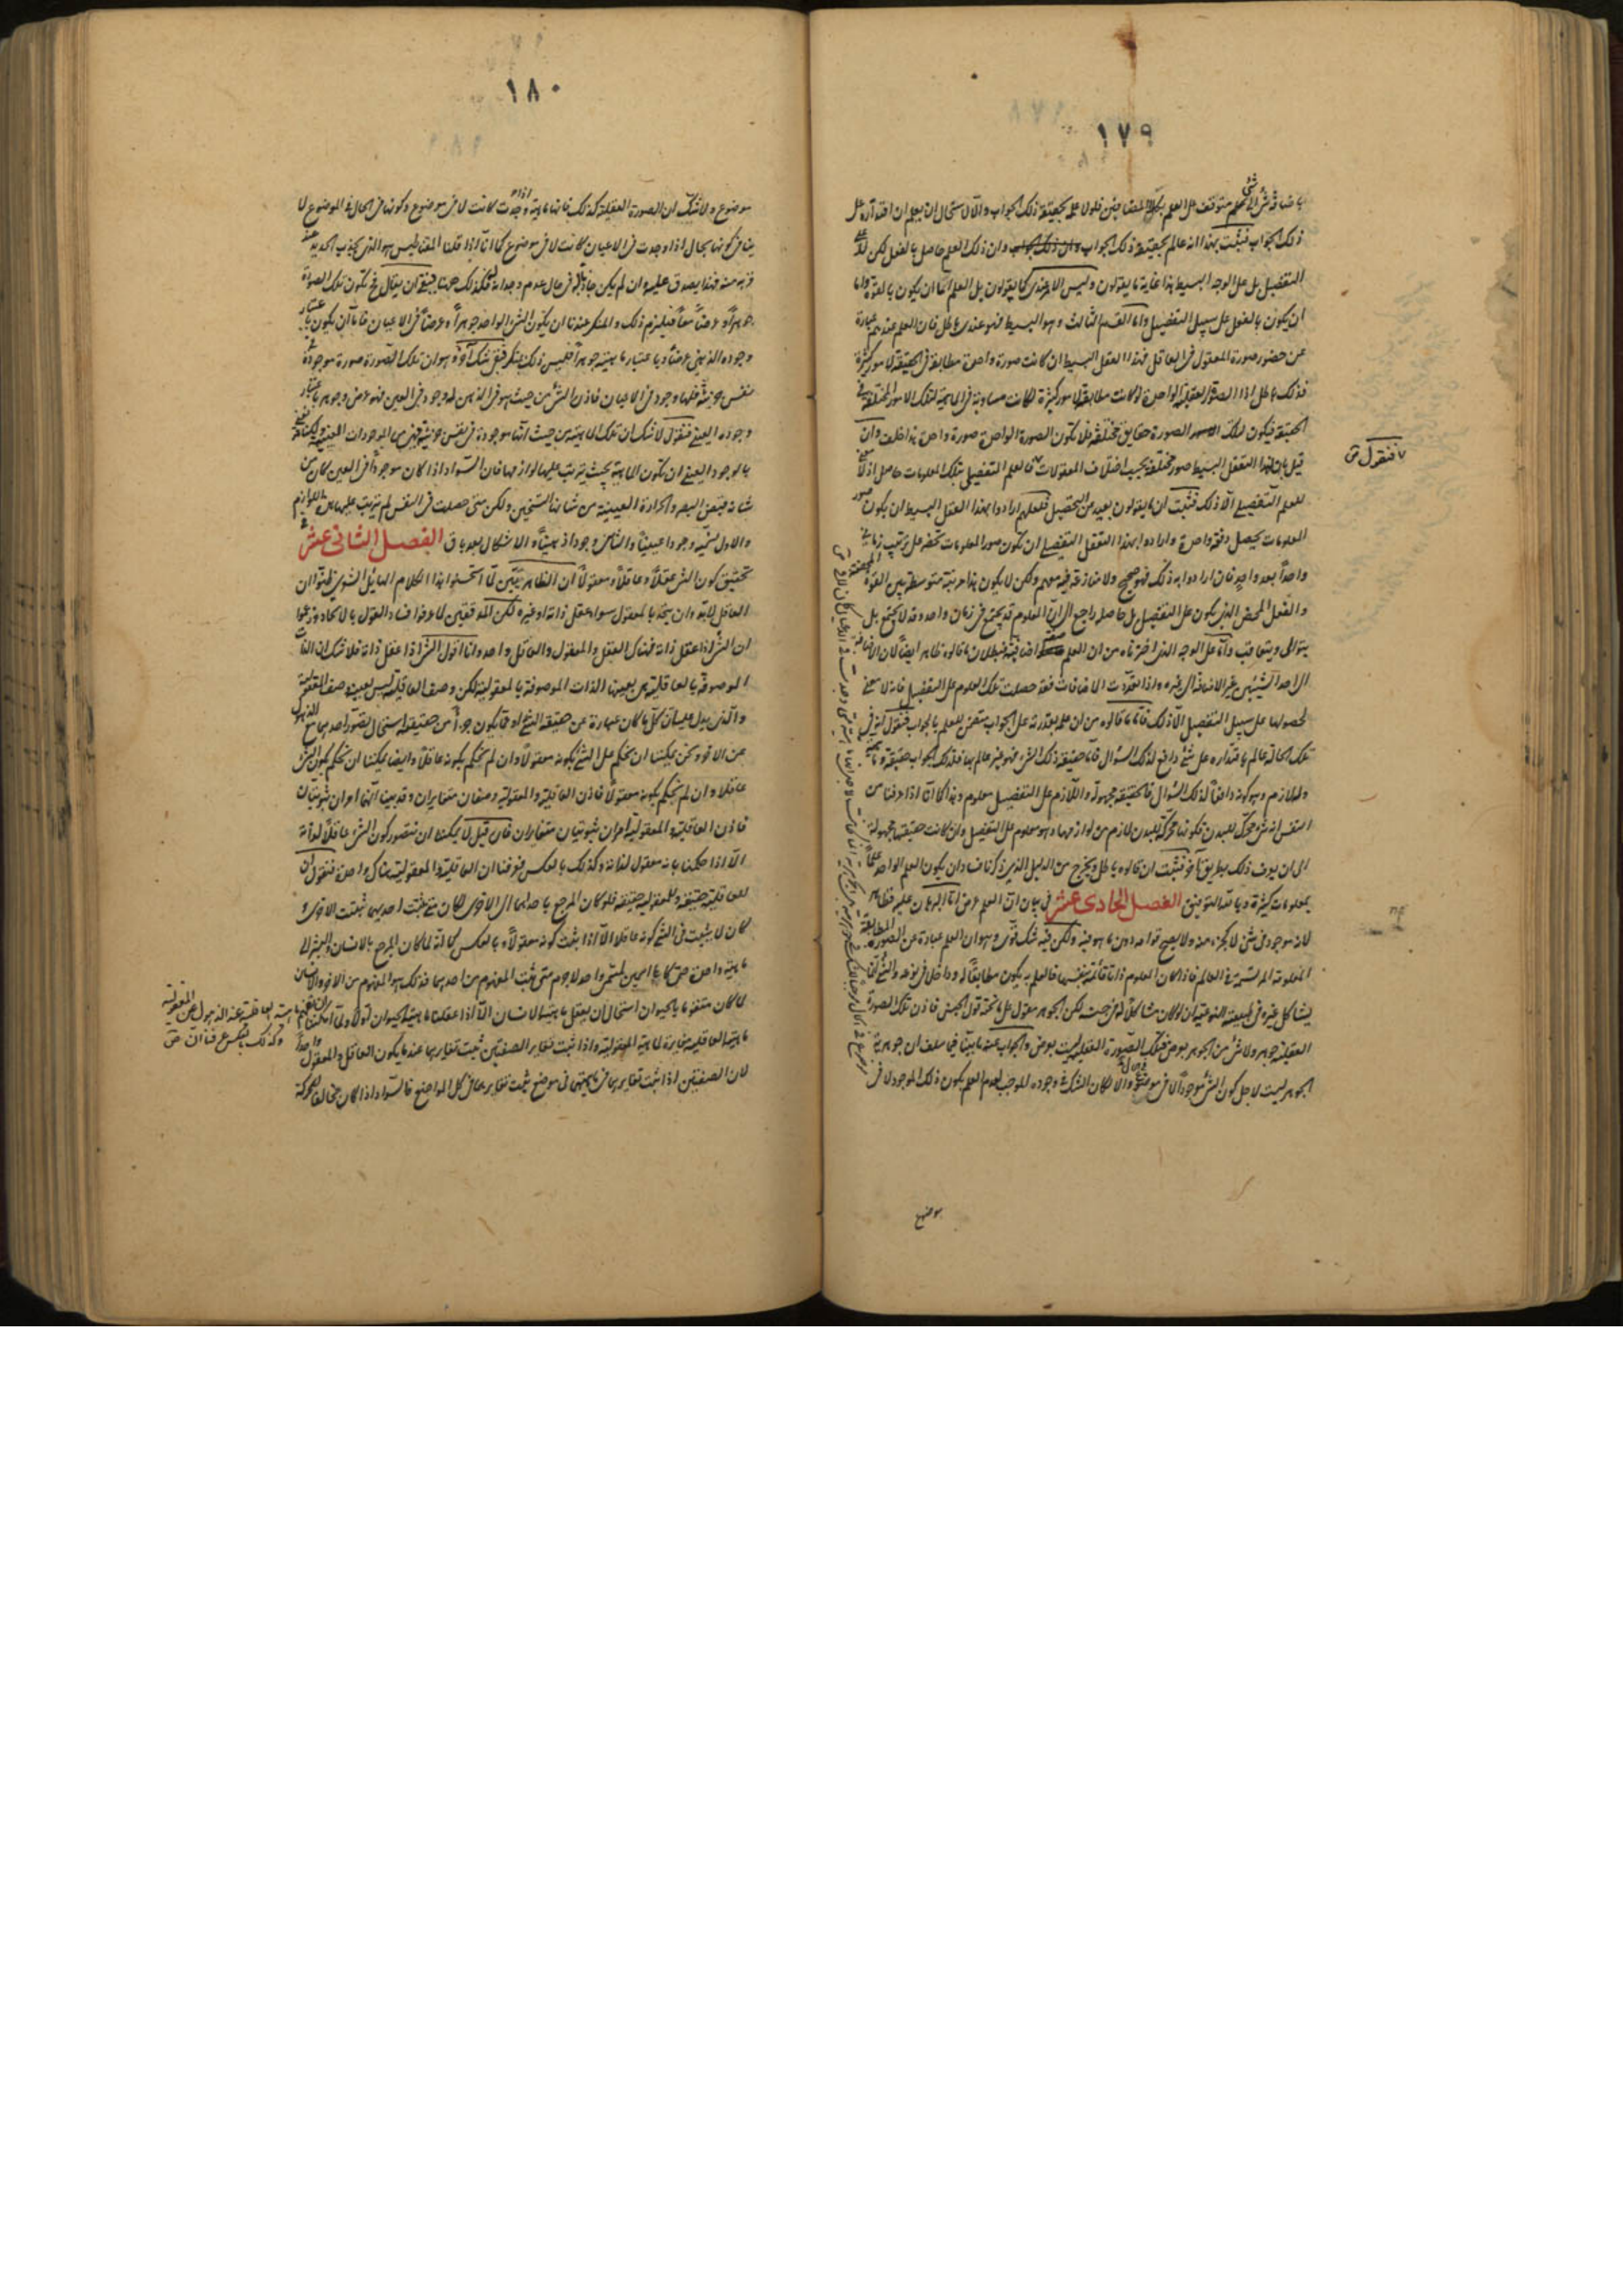 ١٧٩
باضافة شئ الى شئ متوقف على العلم بكلا المضافين فلولا علمه بحقيقة ذلك الجواب والا لاستحال ان يعلم ان اقتداره على
ذلك الجواب فثبت بهذا انه عالم بحقيقة ذلك الجواب وان ذلك العلم حاصل بالفعل لكن لا على
التفصيل بل على الوجه البسيط هذا غاية ما يقولون وليس الامر عندى كما يقولون بل العلم اما ان يكون بالقوة واما
ان يكون بالفعل على سبيل التفصيل واما القسم الثالث وهو البسيط فهو عندى باطل فان العلم عندهم عبارة
عن حضور صورة المعقول فى العاقل فهذا العقل البسيط ان كانت صورة واحدة مطابقة فى الحقيقة لامور كثيرة
فذلك باطل اذ الصورة العقلية الواحدة لو كانت مطابقة لامور كثيرة لكانت مساوية فى الماهية لتلك الامور المختلفة فى
الحقيقة فيكون لتلك الصورة حقايق مختلفة فلا تكون الصورة الواحدة صورة واحدة هذا خلف وان
قيل بان لهذا التعقل البسيط صور مختلفة بحسب اختلاف المعقولات فالعلم التفصيلى بتلك المعلومات حاصل اذ لا معنى
للعلم التفصيلى الا ذلك فثبت ان ما يقولون بعيد عن التحصيل فلعلهم ارادوا بهذا العقل البسيط ان يكون صور
المعلومات يحصل دفعة واحدة وارادوا بهذا التعقل التفصيلى ان تكون صور المعلومات تحضر على ترتيب زمانى
واحدا بعد واحد فان ارادوا به ذلك فهو صحيح ولا منازعة فيه معهم ولكن لا يكون هذا مرتبة متوسطة بين القوة المحضة
والفعل المحض الذى يكون على التفصيل بل حاصله راجع الى ان العلوم قد تجتمع فى زمان واحد وقد لا تجتمع بل
يتوالى ويتعاقب واما على الوجه الذى اخترناه من ان العلم اضافية فبطلان ما قالوه ظاهر ايضا لان الاضافة
الى احد الشيئين غير الاضافة الى غيره واذا تعددت الاضافات فقد حصلت تلك العلوم على التفصيل فانه لا معنى
لحصولها على سبيل التفصيل الا ذلك فاما ما قالوه من ان علمه بقدرته على الجواب متضمن للعلم بالجواب فنقول انه فى
تلك الحالة عالم باقتداره على شئ دافع لذلك السؤال فاما حقيقة ذلك الشئ فهو غير عالم بها فلذلك الجواب حقيقة وماهية
وله لازم وهو كونه دافعا لذلك السؤال فالحقيقة مجهولة واللازم على التفصيل معلوم وهذا كما انا اذا عرفنا من
النفس انه شئ محرك للبدن فكونها محركة للبدن لازم من لوازمها وهو معلوم على التفصيل وان كانت حقيقتها مجهولة
الى ان يعرف ذلك بطريق آخر فثبت ان ما قالوه باطل ويخرج من الدليل الذى ذكرناه فساد ان يكون العلم الواحد علما
بمعلومات كثيرة وبالله التوفيق الفصل الحادى عشر فى بيان ان العلم عرض اما البرهان عليه فظاهر
لانه موجود فى شئ لا كجزء منه ولا يصح قوامه دون ما هو فيه ولكن فيه شك قوى وهو ان العلم عبارة عن الصورة المطابقة
المعلومة المرتسمة فى العالم فاذا كان المعلوم ذاتا قائمة بنفسها فالعلم به يكون مطابقا له وداخلا فى نوعه والشئ انما
يشاكل غيره فى طبيعته النوعية ان لو كان مشاكلا له فى جنسه لكن الجوهر مقول على ما تحته قول الجنس فاذن تلك الصورة
العقلية جوهر ولا شئ من الجوهر بعرض فتلك الصورة العقلية ليست بعرض والجواب عنه ما بينا فيما سلف ان جوهرية
الجوهر ليست لاجل كون الشئ موجودا لا فى موضوع والا لكان الشك فى وجوده الموجب لعدم العلم بكون ذلك الموجود لا فى
فنقول
موضوع
١٨٠
موضوع ولا شك ان الصورة العقلية كذلك فانها ماهية اذا وجدت كانت لا فى موضوع وكونها فى الحال فى الموضوع لا
ينافى كونها بحال اذا وجدت فى الاعيان كانت لا فى موضوع كما انا اذا قلنا المغناطيس هو الذى يجذب الحديد عند
قربه منه فهذا يصدق عليه وان لم يكن جاذبا له فى حال عدم وجدانه فكذلك ههنا بقى ان يقال فح تكون تلك الصورة
جوهرا وعرضا معا فيلزم ذلك والمنكر عندنا ان يكون الشئ الواحد جوهرا وعرضا فى الاعيان فاما ان يكون باعتبار
وجوده الذهنى عرضا وباعتبار ماهيته جوهرا فليس ذلك بمنكر فبقى شك آخر وهو ان تلك الصورة صورة موجودة فى
نفس جزئية فلها وجود فى الاعيان فاذن الشئ من حيث هو فى الذهن له وجود فى العين فهو عرض وجوهر باعتبار
وجوده العينى فنقول لا شك ان تلك الماهية من حيث انها موجودة فى نفس جزئية فهى من الموجودات العينية ولكنا نعنى
بالوجود العينى ان تكون الماهية بحيث يترتب عليها لوازمها فان السواد اذا كان موجودا فى العين كان من
شانه قبض البصر والحرارة العينية من شانها التسخين ولكن متى حصلت فى النفس لم يترتب عليها هذه اللوازم
والاول نسميه وجودا عينيا والثانى وجودا ذهنيا والاشكال بعد باق الفصل الثانى عشر فى
تحقيق كون الشئ عقلا وعاقلا ومعقولا ان الظاهريين لما استحسنوا هذا الكلام الهائل الشعرى ظنوا ان
العاقل لا بد وان يتحد بالمعقول سواء عقل ذاته او غيره لكن المدققين لما عرفوا فساد القول بالاتحاد زعموا
ان الشئ اذا عقل ذاته فهناك العقل والمعقول والعاقل واحد وانا اقول الشئ اذا عقل ذاته فلا شك ان الذات
الموصوفة بالعاقلية هى بعينها الذات الموصوفة بالمعقولية لكن وصف العاقلية ليس بعينه وصف المعقولية
والذى يدل عليه ان كل ما كان عبارة عن حقيقة الشئ او ما يكون جزءا من حقيقته استحال تصور احدهما مع الذهول
عن الاخر ونحن يمكننا ان نحكم على الشئ بكونه معقولا وان لم نحكم بكونه عاقلا وايضا يمكننا ان نحكم بكون الشئ
عاقلا وان لم نحكم بكونه معقولا فاذن العاقلية والمعقولية وصفان متغايران وقد بينا انهما امران ثبوتيان
فاذن العاقلية والمعقولية امران ثبوتيان متغايران فان قيل لا يمكننا ان نتصور كون الشئ عاقلا لذاته
الا اذا حكمنا بانه معقول لذاته وكذلك بالعكس فعرفنا ان العاقلية والمعقولية هناك واحدة فنقول ان
للعاقلية حقيقة وللمعقولية حقيقة فلو كان المرجع باحداهما الى الاخرى لكان متى ثبتت احديهما ثبتت الاخرى
لكان لا يثبت فى الشئ كونه عاقلا الا اذا ثبت كونه معقولا وبالعكس كما انه لما كان المرجع بالانسان والبشر الى
ماهية واحدة حتى كانا اسمين لمسمى واحد لا جرم متى ثبت المفهوم من احدهما فذلك هو المفهوم من الاخر والانسان
لما كان متقوما بالحيوان استحال ان يعقل ماهية الانسان الا اذا عقلنا ماهية الحيوان اولا ولما امكننا ان نفهم
ماهية العاقلية مغايرة لماهية المعقولية واذا ثبت تغاير الصفتين ثبت تغايرهما عند ما يكون العاقل والمعقول واحدا
لان الصفتين اذا ثبت تغايرهما فى ماهيتهما فى موضع ثبت تغايرهما فى كل المواضع فالسواد اذا كان مخالفا للحركة
ماهية العاقلية عند الذهول عن المعقولية
وكذلك بالعكس عرفنا ان